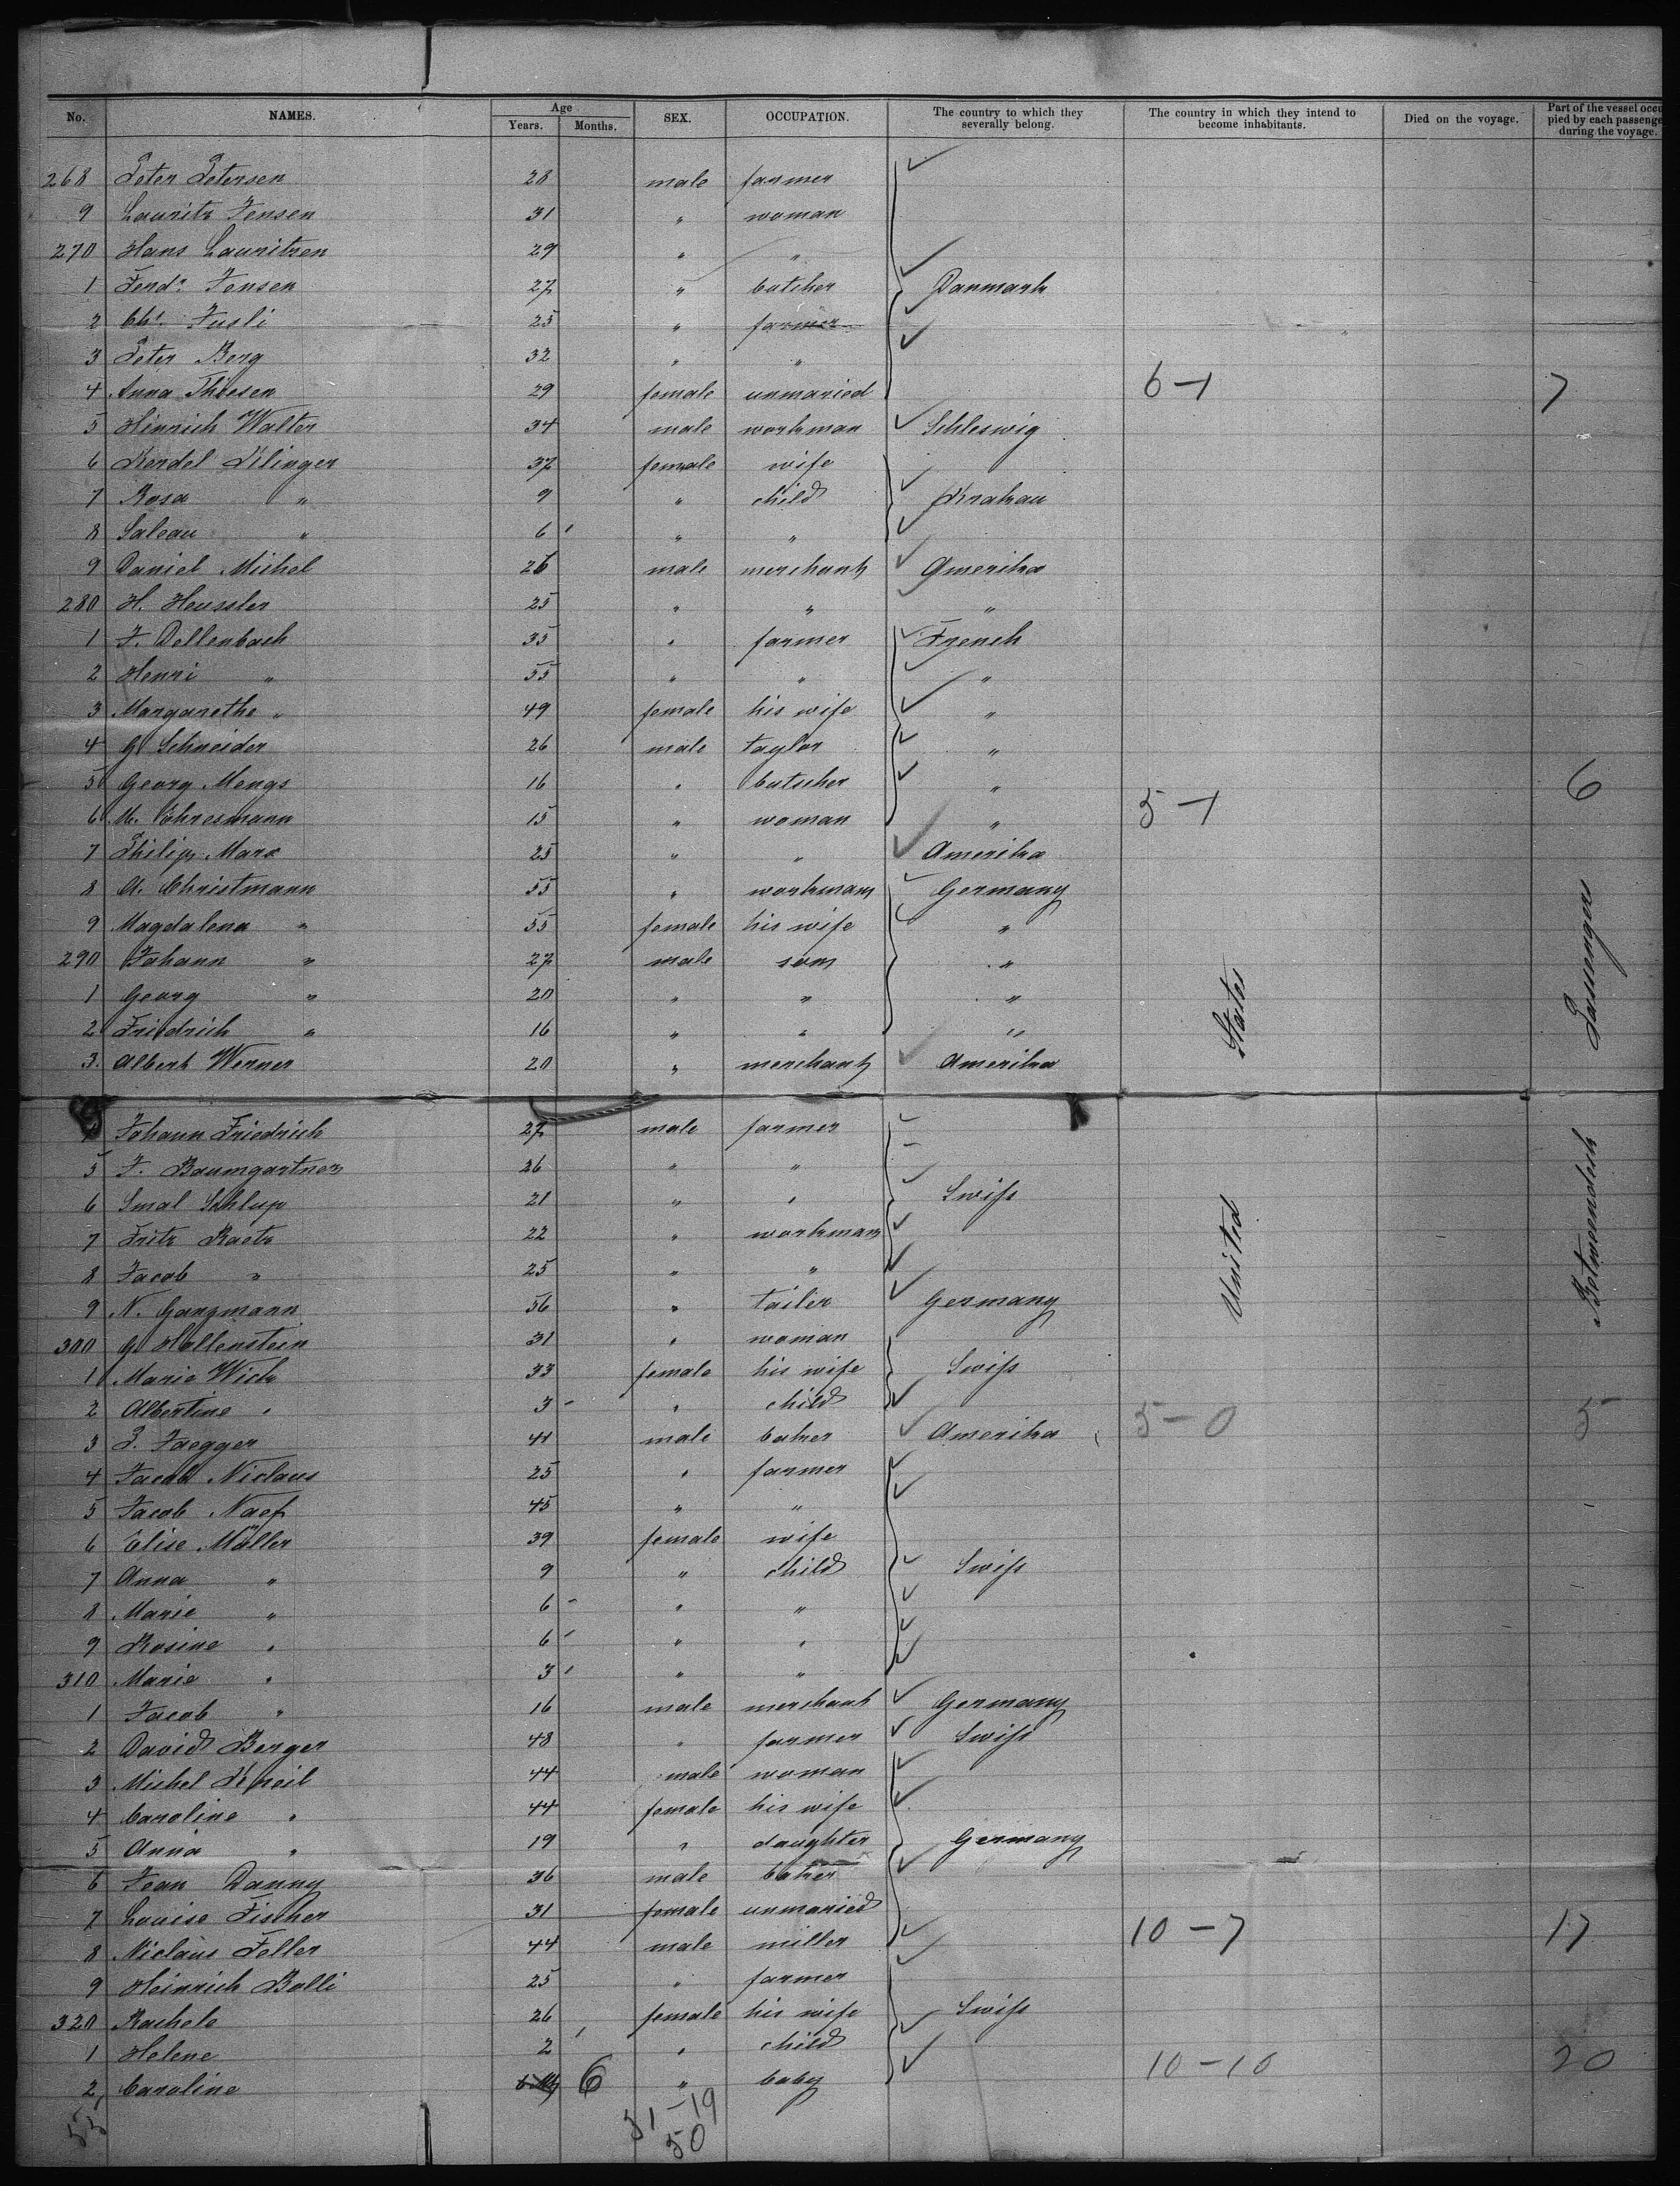 No. NAMES. Age Years. Months. SEX. OCCUPATION. The country to which they severally belong. The country in which they intend to become inhabitants. Died on the voyage. Part of the vessel occupied by each passenger during the voyage.
268 Peter Petersen 28 male farmer
9 Lauritz Jensen 31 " woman
270 Hans Lauritzen 29 " "
1 Ferd. Jensen 27 " butcher Danmark
2 Chr. Fusli 25 " farmer
3 Peter Berg 32 " "
4 Anna Thiesen 29 female unmaried 6-1 7
5 Hinrich Walter 34 male workman Schleswig
6 37 female wife
7 Rosa " 9 " child Krakau
8 Saleau " 6 " "
9 Daniel Michel 26 male merchant Amerika
280 H. Heussler 25 " " "
1 F. Dellenbach 35 " farmer French
2 Henri " 55 " " "
3 Margarethe " 49 female his wife "
4 G. Schneider 26 male taylor "
5 Georg Mengs 16 " butscher " 6
6 M. Ehresmann 15 " woman " 5-1
7 Philip Marx 25 " " Amerika
8 A. Christmann 55 " workman Germany
9 Magdalena " 55 female his wife "
290 Johann " 27 male son "
1 Georg " 20 " " "
2 Friedrich " 16 " " "
3. Albert Werner 20 " merchant Amerika
Johann Friedrich 27 male farmer
5 F. Baumgartner 26 " "
6 Smal Schlup 21 " " Swiss
7 Fritz Raetz 22 " workman
8 Jacob " 25 " "
9 N. Ganzmann 56 " tailer Germany
300 G. Hollenstein 31 " woman
1 Marie Wick 33 female his wife Swiss
2 Albertine " 3 " child
3 P. Jaegger 41 male baker Amerika 5-0 5
4 Jacob Niclaus 25 " farmer
5 Jacob Naef 45 " "
6 Elise Müller 39 female wife
7 Anna " 9 " child Swiss
8 Marie " 6 " "
9 Rosine " 6 " "
310 Marie " 3 " "
1 Jacob " 16 male merchant Germany
2 David Berger 48 " farmer Swiss
3 Michel 44 male woman
4 Caroline " 44 female his wife
5 Anna " 19 " daughter Germany
6 Jean Danny 36 male baker
7 Louise Fischer 31 female unmaried
8 Niclaus Feller 44 male miller 10-7 17
9 Heinrich Bolli 25 " farmer
320 Rachele 26 female his wife Swiss
1 Helene 2 " child
2 Caroline 6 " baby 10-10 20
United States
Betweendeck Passengers
55
31-19
50